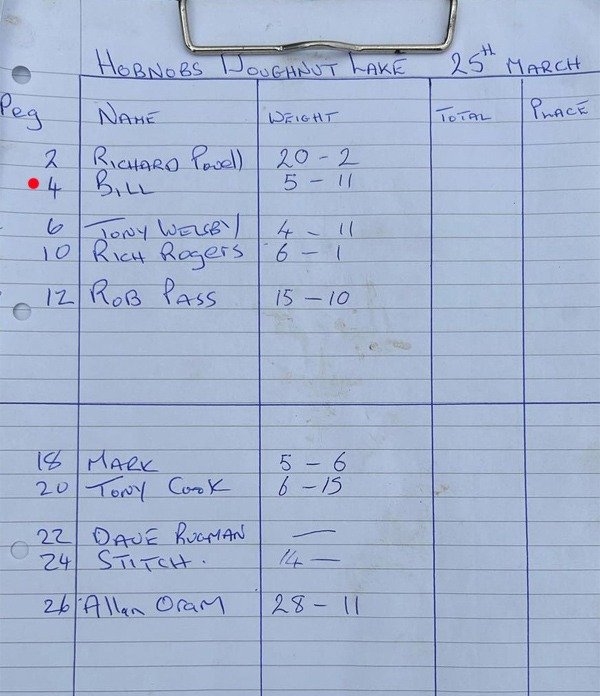 HOBNOBS DOUGHNUT LAKE 25TH MARCH
Peg NAME WEIGHT TOTAL PLACE
2 RICHARD Powell 20 - 2
4 BILL 5 - 11
6 TONY WELSBY 4 - 11
10 RICH Rogers 6 - 1
12 ROB PASS 15 - 10
18 MARK 5 - 6
20 TONY COOK 6 - 15
22 DAVE RUGMAN —
24 STITCH. 14 —
26 Allan Oram 28 - 11